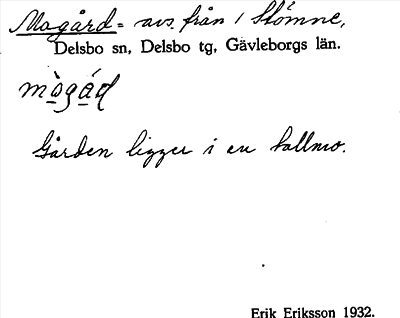 Mogård = avs. från 1 Stömne,
Delsbo sn, Delsbo tg, Gävleborgs län.
mògád
Gården ligger i en tallmo.
Erik Eriksson 1932.